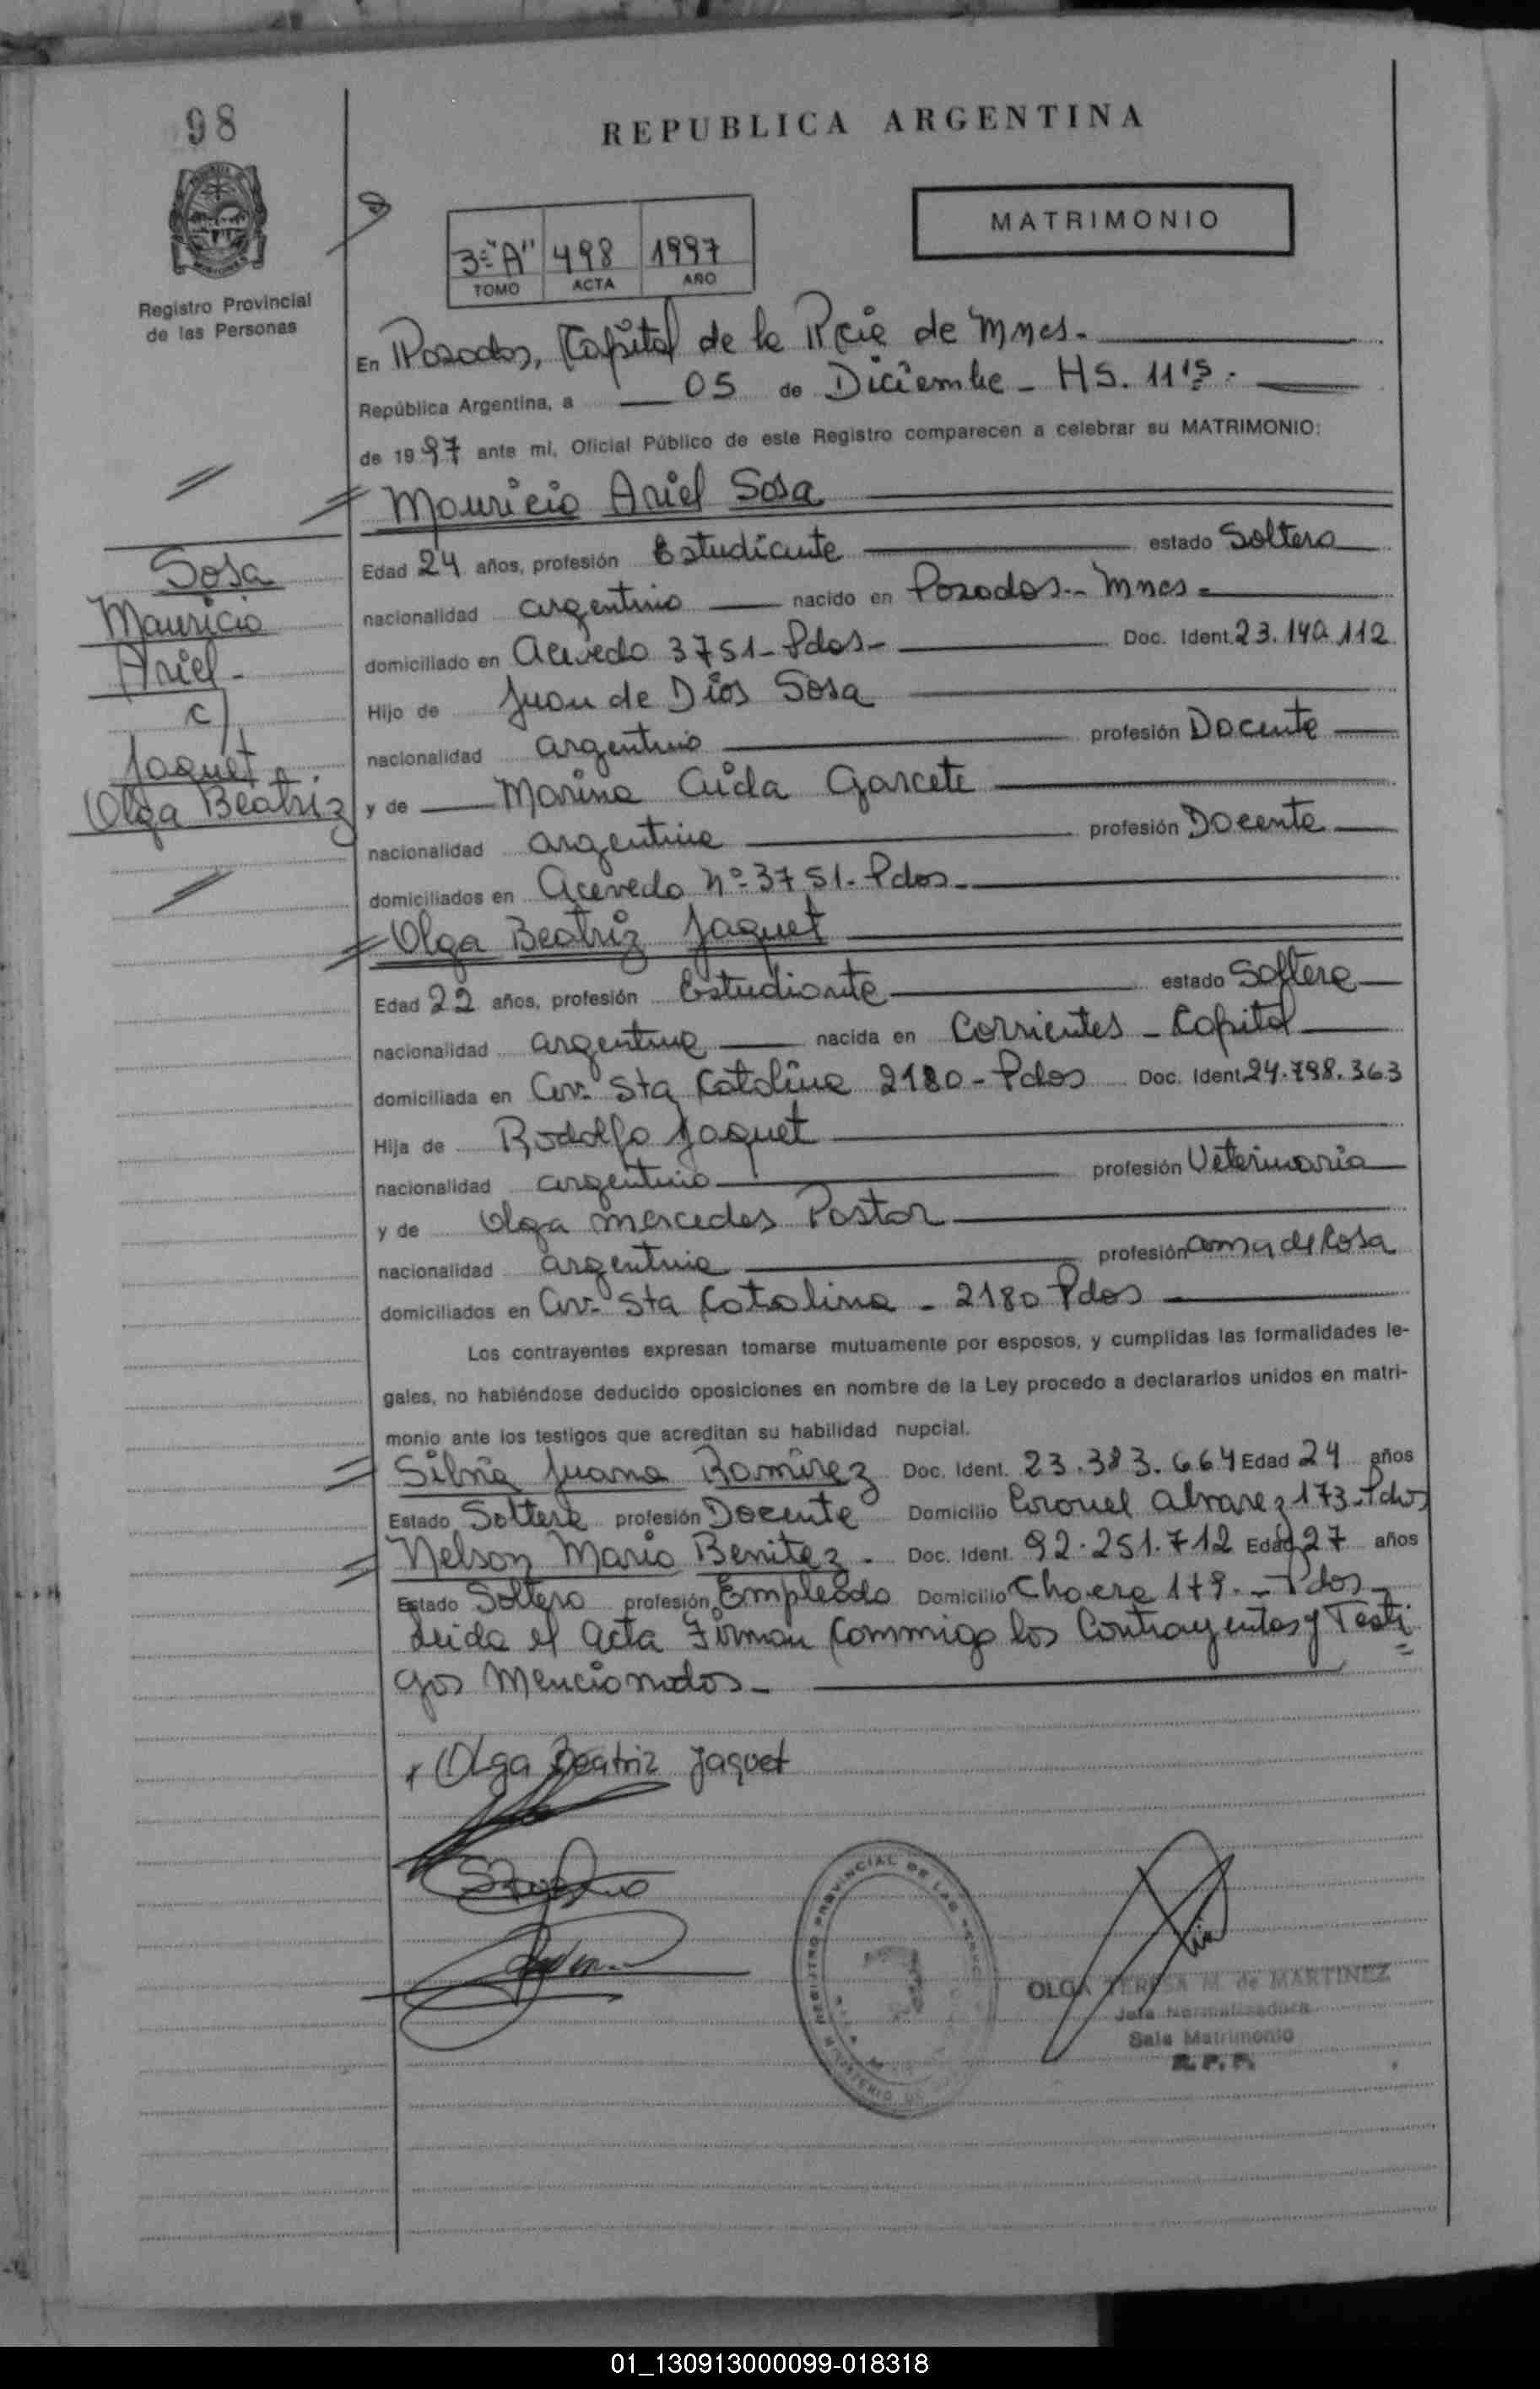 98
REPUBLICA ARGENTINA
MATRIMONIO
3º "A" 498 1997
TOMO ACTA AÑO
Registro Provincial
de las Personas
En Posadas, Capital de la Pcia de Mnes.
República Argentina, a 05 de Diciembre - HS. 11 15.
de 1997 ante mí, Oficial Público de este Registro comparecen a celebrar su MATRIMONIO:
Mauricio Ariel Sosa
Edad 24 años, profesión Estudiante estado Soltero
nacionalidad argentino nacido en Posadas - Mnes
domiciliado en Acevedo 3751 - Pdas - Doc. Ident. 23.140.112
Hijo de Juan de Dios Sosa
nacionalidad argentino profesión Docente
y de Marina Aida Garcete
nacionalidad argentina profesión Docente
domiciliados en Acevedo Nº 3751 - Pdas
Sosa
Mauricio
Ariel -
c/
Jaquet
Olga Beatriz
Olga Beatriz Jaquet
Edad 22 años, profesión Estudiante estado Soltera
nacionalidad argentina nacida en Corrientes - Capital
domiciliada en Av. Sta Catalina 2180 - Pdas Doc. Ident. 24.798.363
Hija de Rodolfo Jaquet
nacionalidad argentino profesión Veterinario
y de Olga Mercedes Pastor
nacionalidad argentina profesión ama de Casa
domiciliados en Av. Sta Catalina - 2180 Pdas
Los contrayentes expresan tomarse mutuamente por esposos, y cumplidas las formalidades le-
gales, no habiéndose deducido oposiciones en nombre de la Ley procedo a declararlos unidos en matri-
monio ante los testigos que acreditan su habilidad nupcial.
Silvia Juana Ramirez Doc. Ident. 23.383.664 Edad 24 años
Estado Soltera profesión Docente Domicilio Coronel Alvarez 173 - Pdas
Nelson Mario Benitez - Doc. Ident. 92.251.712 Edad 27 años
Estado Soltero profesión Empleado Domicilio 179 - Pdas
Leida el Acta Firman Conmigo los Contrayentes y Testi
gos Mencionados -
Olga Beatriz Jaquet
REGISTRO PROVINCIAL DE LAS
OLGA TERESA M. de MARTINEZ
Jefa Normalizadora
Sala Matrimonio
R. P. P.
01_130913000099-018318